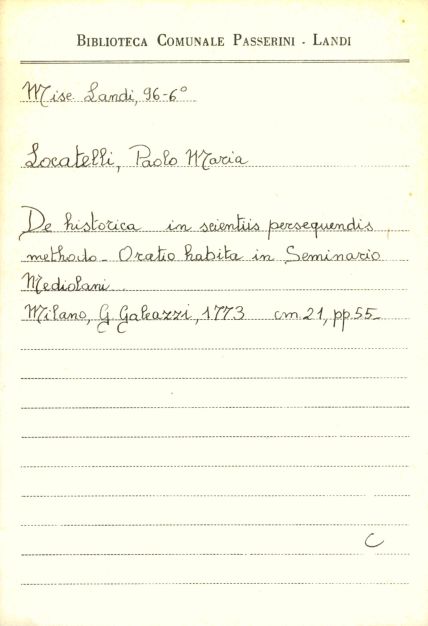 BIBLIOTECA COMUNALE PASSERINI - LANDI
Misc. Landi, 96-6°
Locatelli, Paolo Maria
De historica in scientiis persequendis
methodo - Oratio habita in Seminario
Mediolani
Milano, G. Galeazzi, 1773 cm 21, pp 55-
C